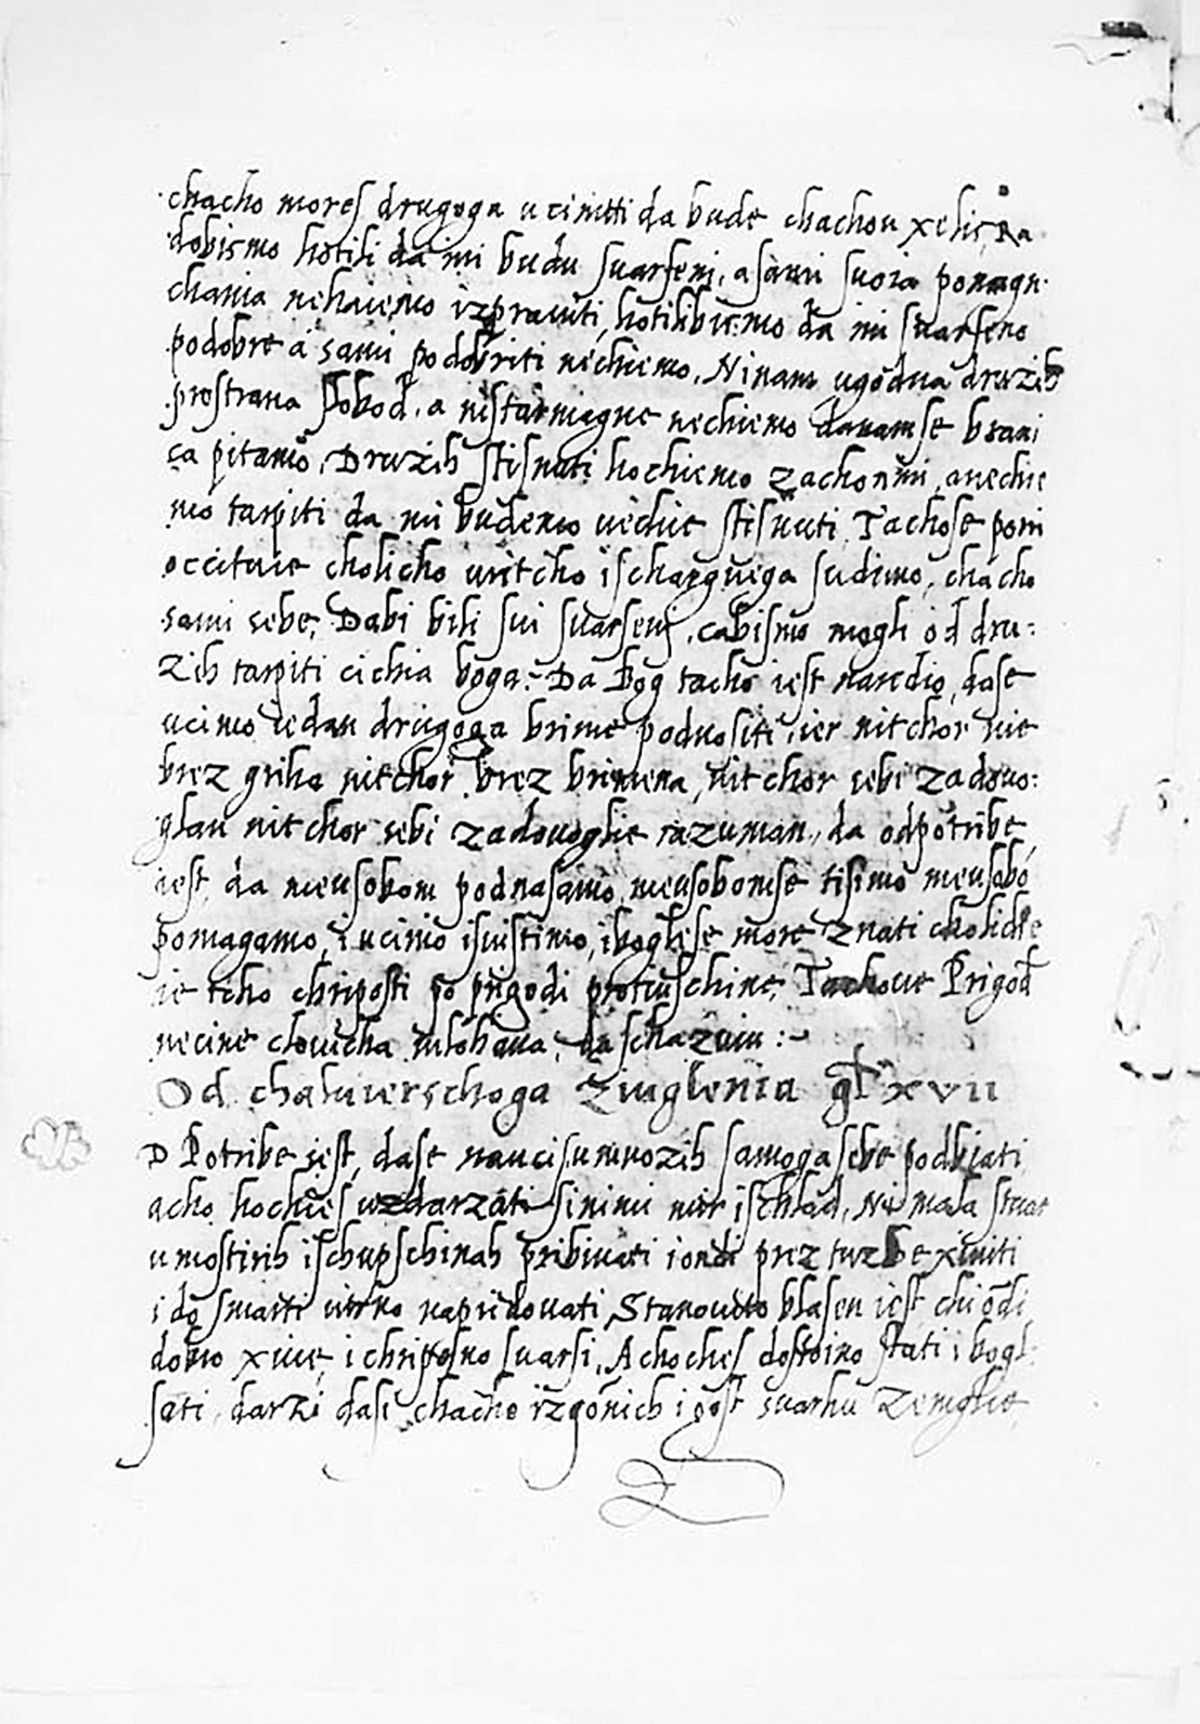 chacho mores drugoga ucinitti da bude chachou xelis, Ra
dobismo hotili da mi budu suarseni, a sami suoia pomagn
chania nehaiemo izprauiti, hotilibismo da mi suarseno
podobre a sami podobriti nechiemo, Ninam ugodna druzih
prostrana slobod, a nistarmagne nechiemo danamse brani
ca pitamo, Druzih stisnuti hochiemo zachonmi, anechie
mo tarpiti da mi budemo uechie stisnuti Tachose poni
occituie cholicho uritcho ischargnega sudimo, chacho
sami sebe, Dabi bili sui suarseni, cabismo mogli od dru:
zih tarpiti cichia boga:- Da Bog tacho iest naredio, dase
ucimo iedan drugoga brime podnositi, ier nitchor nie
brez griha nitchor brez brimena, nitchor sebi zadouo:
glan nitchor sebi zadouoglie razuman, da odpotribe
iest, da meusobom podnasamo, meusobomse tisimo meusobo
pomagamo, i ucimo isuistimo, iboglese more znati cholicke
ie tcho chriposti po prigodi protiuschine, Tachoue Prigod
necine clouicha mlohaua, da schazuiu :-
Od chaluierschoga Ziuglenia gl xvii
D Potribe iest, dase naucis umnozih samoga sebe podbiati
acho hochies uzdarzati sinimi mir ischlad, Ni mala stuar
u mostirih ischupschinah pribiuati i ondi prez tuzbe xiuiti
i do smarti uirno napridouati Stanouito blasen iest chi ondi
dobro xiue, i chriposno suarsi, Achoches dostoino stati i bogl:
sati, darzi dasi chacho izgonich i gost suarhu zemglie